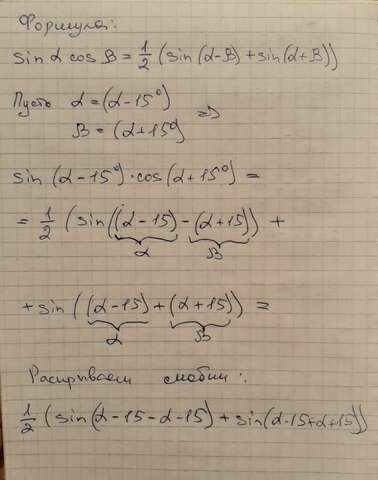 Формула:
sin α cos B = 1/2 (sin (α-B) + sin(α+B))
Пусть α = (α-15°)
B = (α+15°) =>
sin (α-15°)·cos(α+15°) =
= 1/2 (sin((α-15)-(α+15)) +
α B
+ sin ((α-15)+(α+15)) =
α B
Раскрываем скобки:
1/2 (sin(α-15-α-15) + sin(α-15+α+15))